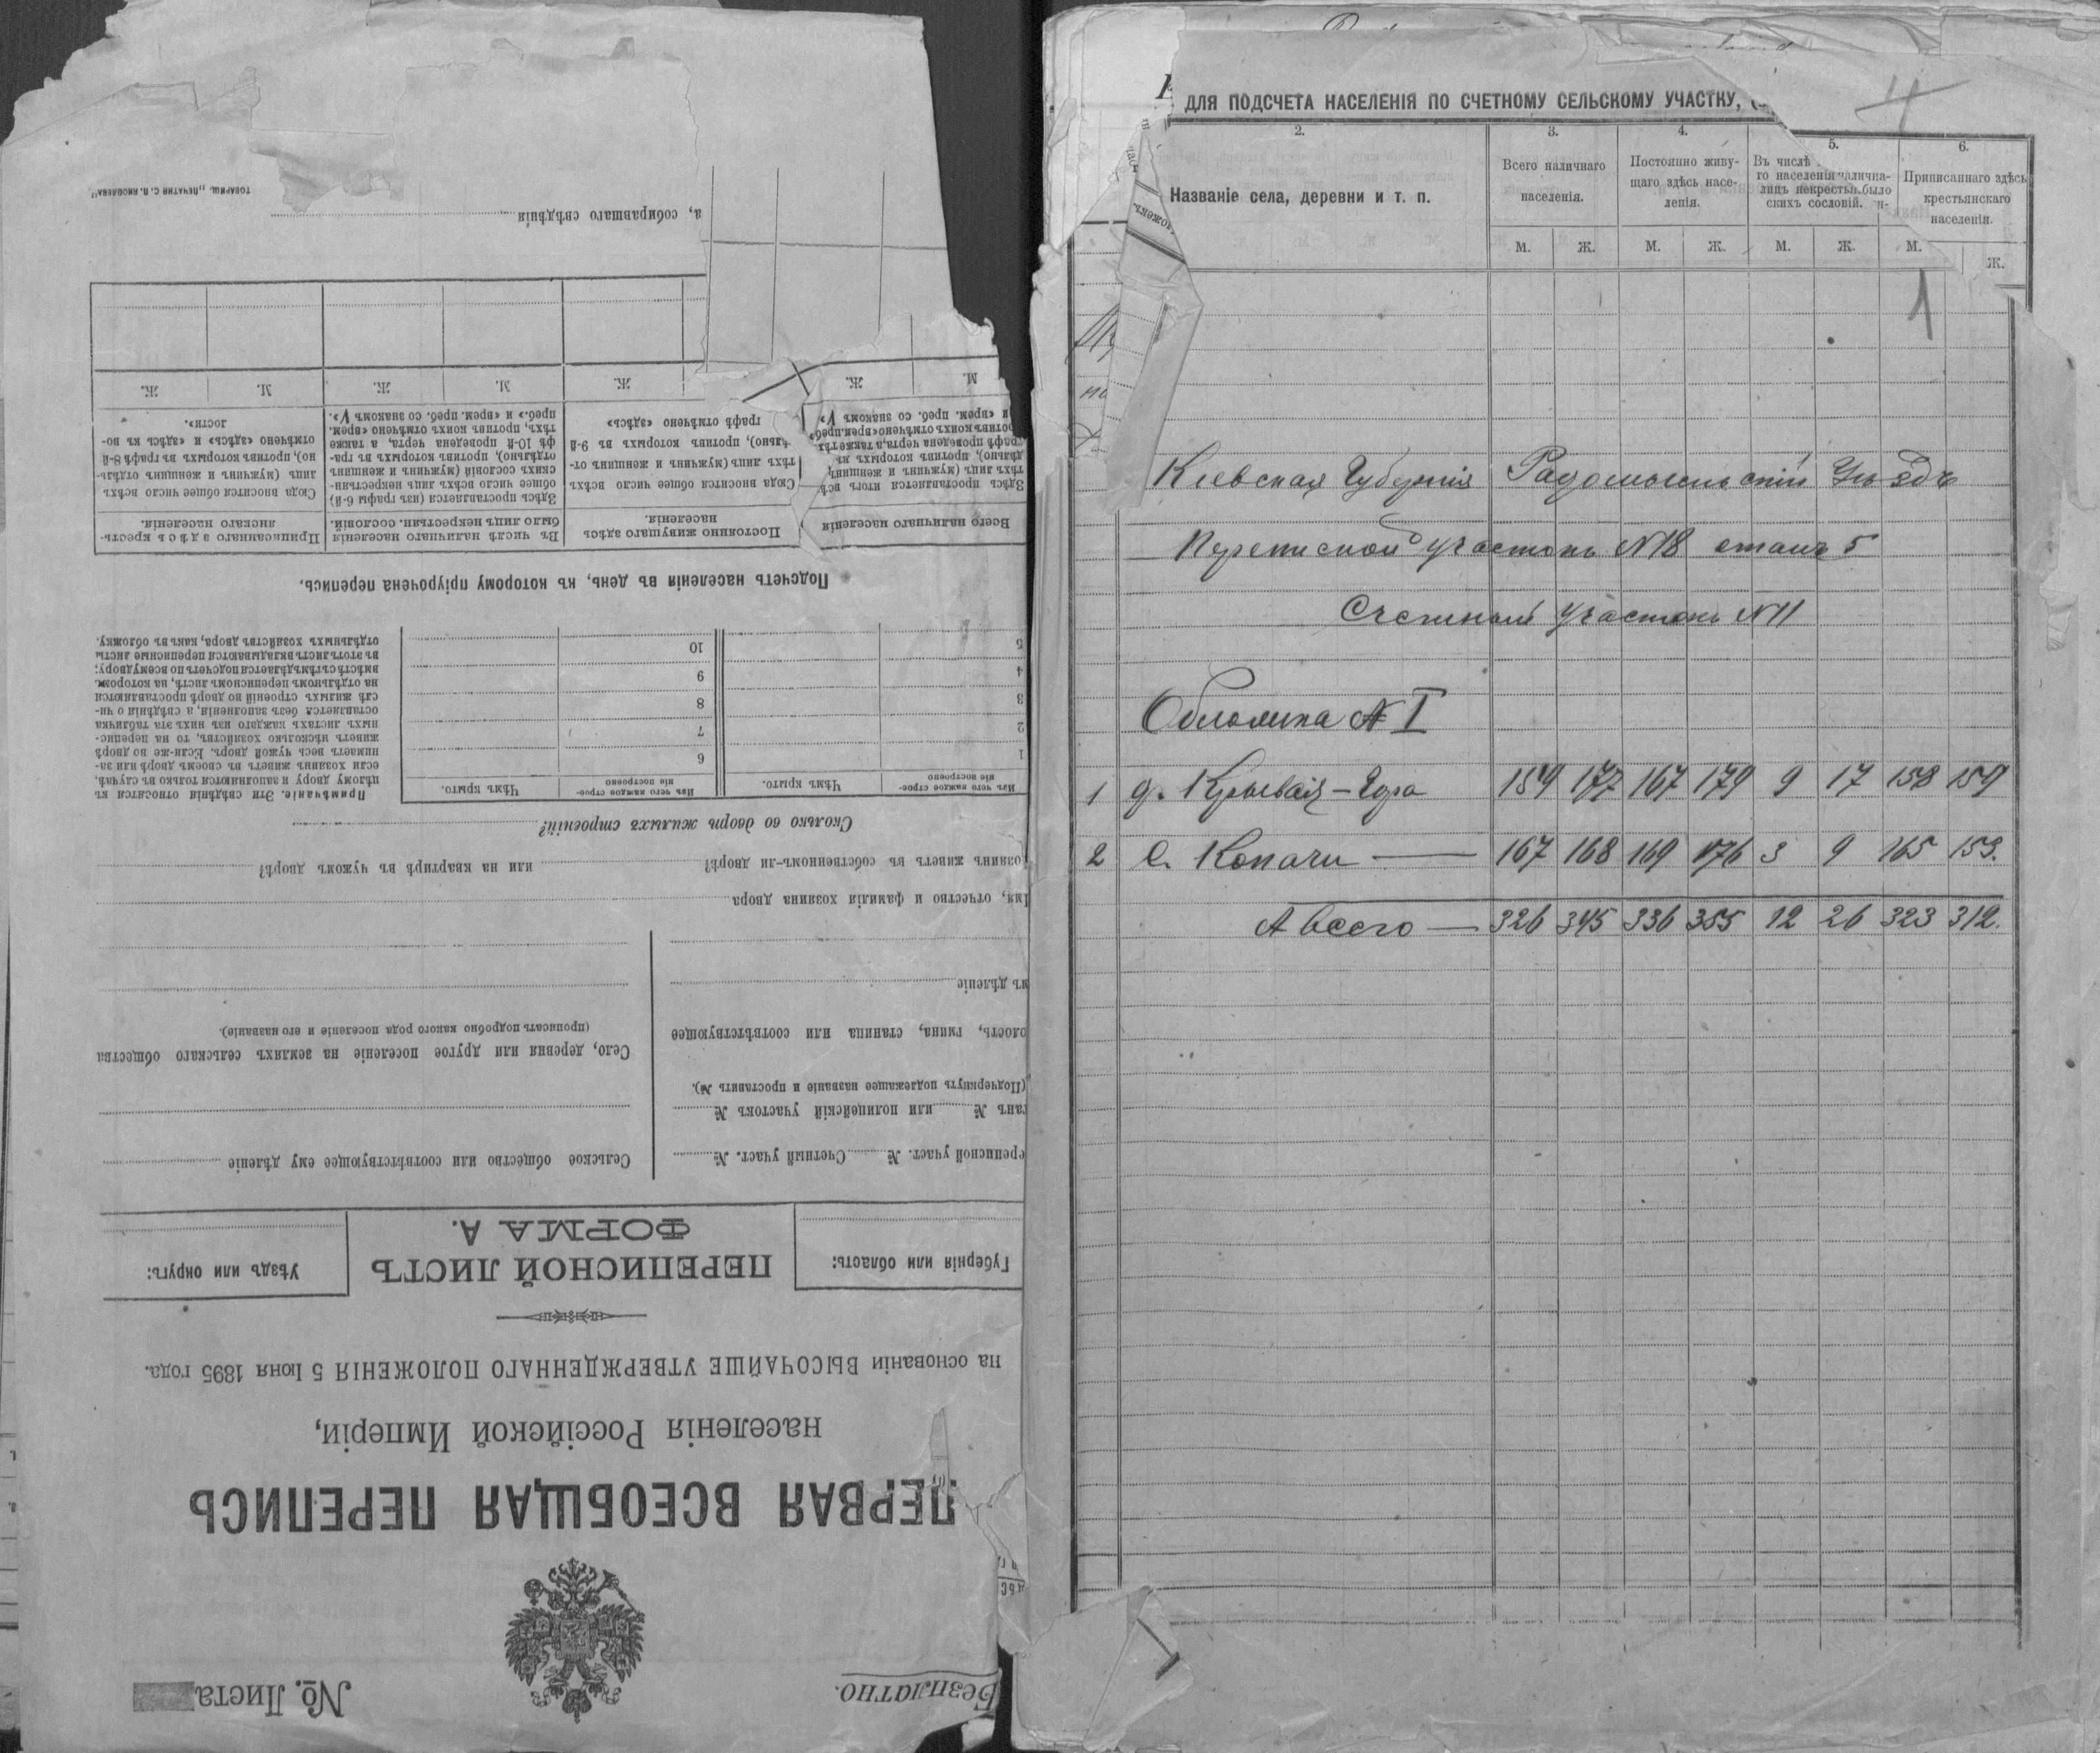 №. Листа
Безплатно.
ПЕРВАЯ ВСЕОБЩАЯ ПЕРЕПИСЬ
населенія Россійской Имперіи,
на основаніи ВЫСОЧАЙШЕ УТВЕРЖДЕННАГО ПОЛОЖЕНІЯ 5 Іюня 1895 года.
Губернія или область:
ПЕРЕПИСНОЙ ЛИСТЪ
ФОРМА А.
Уѣздъ или округъ:
ереписной участ. № Счетный участ. №
танъ № или полицейскій участокъ №
(Подчеркнуть подлежащее названіе и проставить №).
олость, гмина, станица или соотвѣтствующее
мъ дѣленіе
Сельское общество или соотвѣтствующее ему дѣленіе
Село, деревня или другое поселеніе на земляхъ сельскаго общества
(прописать подробно какого рода поселеніе и его названіе).
Имя, отчество и фамилія хозяина двора
хозяинъ живетъ въ собственномъ-ли дворѣ? или на квартирѣ въ чужомъ дворѣ?
Сколько во дворѣ жилыхъ строеній?
Изъ чего каждое строе-
ніе построено
Чѣмъ крыто.
Изъ чего каждое строе-
ніе построено
Чѣмъ крыто.
1 6
2 7
3 8
4 9
5 10
Примѣчаніе. Эти свѣдѣнія относятся къ
цѣлому двору и заполняются только въ случаѣ,
если хозяинъ живетъ въ своемъ дворѣ или за-
нимаетъ весь чужой дворъ. Если-же во дворѣ
живетъ нѣсколько хозяйствъ, то на перепис-
ныхъ листахъ каждаго изъ нихъ эта табличка
оставляется безъ заполненія, а свѣдѣнія о чи-
слѣ жилыхъ строеній во дворѣ проставляются
на отдѣльномъ переписномъ листѣ, на которомъ
вмѣстѣ съ тѣмъ дѣлается подсчетъ по всему двору;
въ этотъ листъ вкладываются переписные листы
отдѣльныхъ хозяйствъ двора, какъ въ обложку.
Подсчетъ населенія въ день, къ которому пріурочена перепись.
Всего наличнаго населенія
Постоянно живущаго здѣсь
населенія.
Въ числѣ наличнаго населенія
было лицъ некрестьян. сословій.
Приписаннаго здѣсь кресть-
янскаго населенія.
Здѣсь проставляется итогъ всѣ
тѣхъ лицъ (мужчинъ и женщинъ,
дѣльно), противъ которыхъ въ
графѣ проведена черта, а также тѣхъ
ротивъ коихъ отмѣчено «врем. преб»
и «врем. преб. со знакомъ V».
Сюда вносится общее число всѣхъ
тѣхъ лицъ (мужчинъ и женщинъ от-
ѣльно), противъ которыхъ въ 9-й
графѣ отмѣчено «здѣсь»
Здѣсь проставляется (изъ графы 6-й)
общее число всѣхъ лицъ некрестьян-
скихъ сословій (мужчинъ и женщинъ
отдѣльно), противъ которыхъ въ гра-
фѣ 10-й проведена черта, а также
тѣхъ, противъ коихъ отмѣчено «врем.
преб.» и «врем. преб. со знакомъ V».
Сюда вносится общее число всѣхъ
лицъ (мужчинъ и женщинъ отдѣль-
но), противъ которыхъ въ графѣ 8-й
отмѣчено «здѣсь» и «здѣсь къ во-
лости».
М. Ж. Ж. М. Ж. М. Ж.
а, собиравшаго свѣдѣнія
ТОВАРИЩ. „ПЕЧАТНИ С. П. ЯКОВЛЕВА"
ДЛЯ ПОДСЧЕТА НАСЕЛЕНІЯ ПО СЧЕТНОМУ СЕЛЬСКОМУ УЧАСТКУ,
4
2. 3. 4. 5. 6.
Названіе села, деревни и т. п.
Всего наличнаго
населенія.
Постоянно живу-
щаго здѣсь насе-
ленія.
Въ числѣ
го населенія налична-
лицъ некрестьян. было
скихъ сословій.
Приписаннаго здѣсь
крестьянскаго
населенія.
М. Ж. М. Ж. М. Ж. М. Ж.
1
Кіевская Губернія Радомысльскій Уѣздъ
Переписной участокъ N18 станъ 5
Счетный участокъ N11
Обложка № I
1 д. Крывая-Гора 159 177 167 179 9 17 158 159
2 с. Копачи — 167 168 169 176 3 9 165 153.
А всего — 326 345 336 355 12 26 323 312.